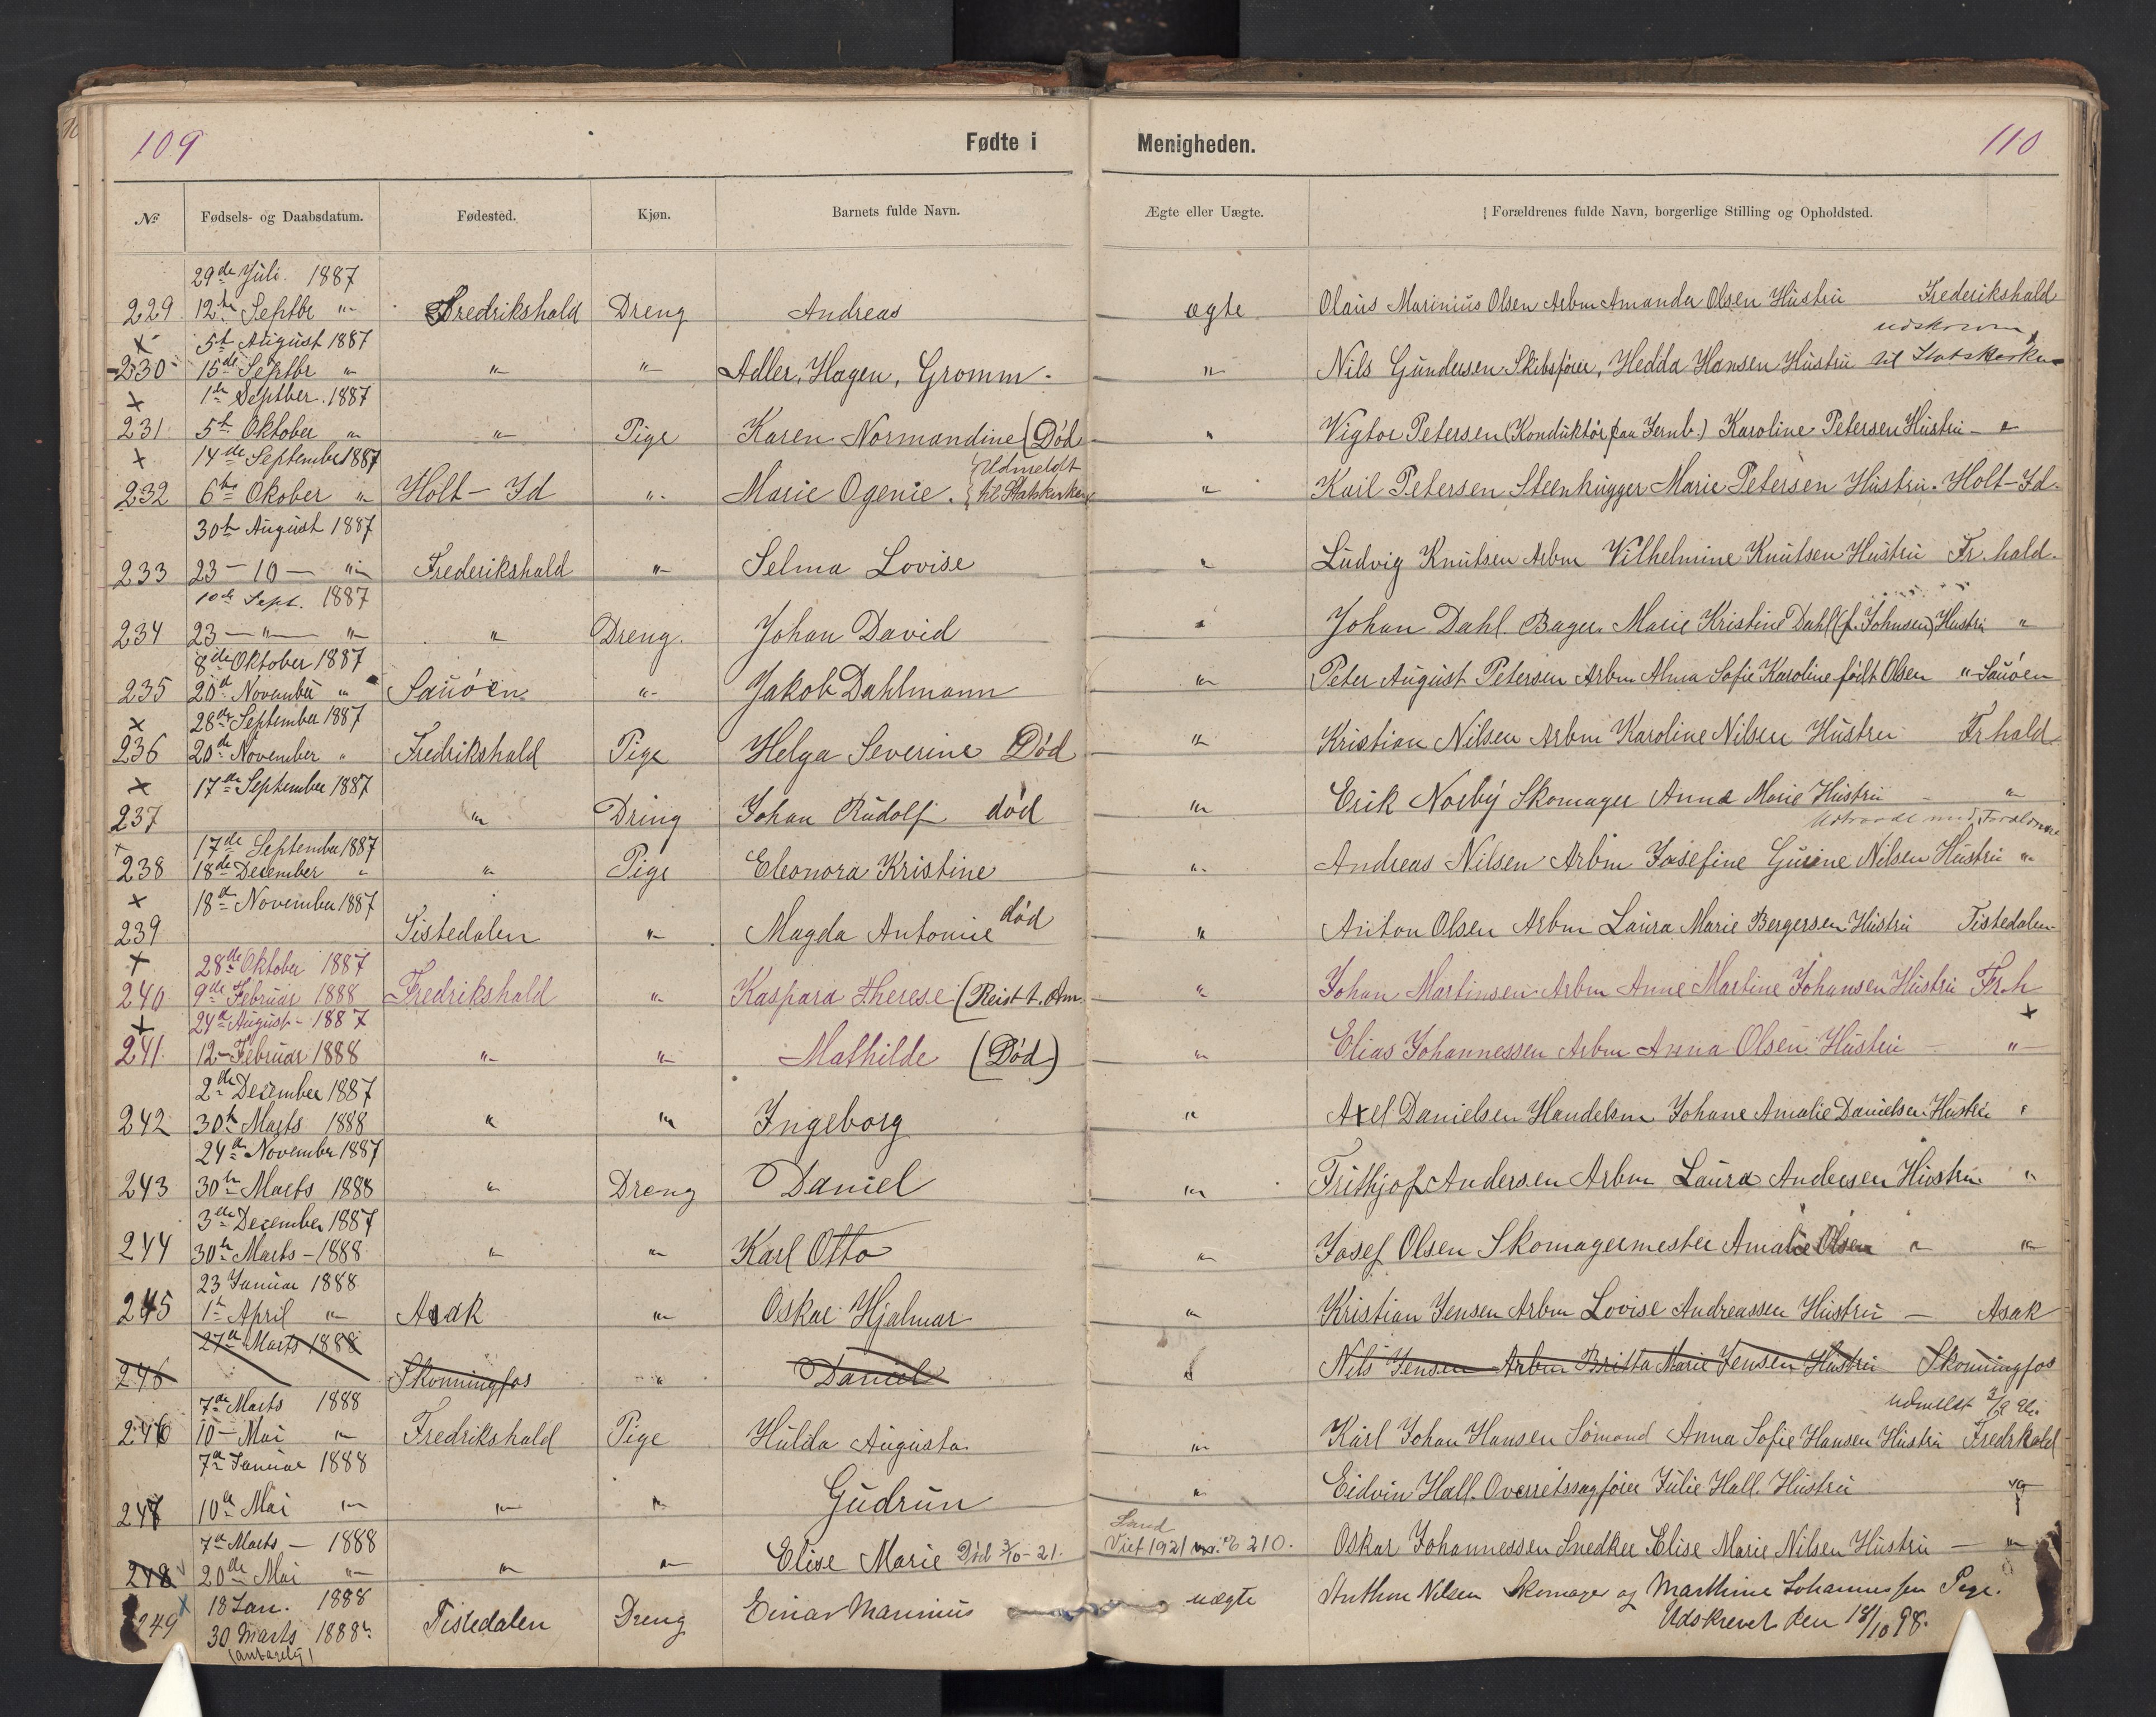 109 Fødte i Menigheden. 110
№ Fødsels- og Daabsdatum. Fødested. Kjøn. Barnets fulde Navn. Ægte eller Uægte. Forældrenes fulde Navn, borgerlige Stilling og Opholdsted.
29de Juli. 1887
229 12te Septbr " Fredrikshald Dreng Andreas ægte Olaus Marinius Olsen Arbm Amanda Olsen Hustru Frederikshald
x 5te August 1887
230 15de Septbr " " " Adler, Hagen, Gromm. " Nils Gundersen Skibsfører, Hedda Hansen Hustru til Statskirken
x 1te Septber. 1887
231 5te Oktober " " Pige Karen Normandine (Død " Vigtor Petersen (Konduktör paa Jernb.) Karoline Petersen Hustru - "
x 14de September 1887 Udmeldt
232 6te Okober " Holt - Id " Marie Ogenie. til Statskirken " Karl Petersen Steenhugger Marie Petersen Hustru. Holt - Id.
30te August 1887
233 23 - 10 - " Frederikshald " Selma Lovise " Ludvig Knutsen Arbm Vilhelmine Knutsen Hustru Fr.hald.
10de Sept. 1887
234 23 - " - " " Dreng. Johan David " Johan Dahl. Bager. Marie Kristine Dahl (f. Johnsen) Hustru "
8de Oktober 1887
235 20de November " Sauöen " Jakob Dahlmann " Peter August Petersen Arbm Alma Sofie Karoline født Olsen " Sauöen
x 28de September 1887
236 20de November " Fredrikshald Pige Helga Severine Död " Kristian Nilsen Arbm Karoline Nilsen Hustru Fr hald
x 17de September 1887
237 " Dring Johan Rudolf død " Erik Norby Skomager Anna Marie Hustru - "
x 17de September 1887
238 18de December " " Pige Eleonora Kristine " Andreas Nilsen Arbm Josefine Gurine Nilsen Hustru "
x 18de November 1887
239 Tistedalen " Magda Antonie død " Anton Olsen Arbm Laura Marie Bergersen Hustru Tistedalen
x 28de Oktober 1887
240 9de Februar 1888 Fredrikshald " Kaspara Therese (Reist t. Am. " Johan Martinsen Arbm Anne Martine Johansen Hustru Fr.h
x 24de August - 1887 x
241 12 - Februar 1888 " " Mathilde (Död) " Elias Johannessen Arbm Anna Olsen Hustru - "
2de December 1887
242 30te Marts 1888 " " Ingeborg " Axel Danielsen Handelsm Johane Amalie Danielsen Hustru "
24de November 1887
243 30te Marts 1888 " Dreng Daniel " Frithjof Andersen Arbm Laura Andersen Hustru "
3de December 1887
244 30te Marts - 1888 " " Karl Otto " Josef Olsen Skomagermester Amalie Olsen " "
23 Januar 1888
245 1te April " Asak " Oskar Hjalmar " Kristian Jensen Arbm Lovise Andreassen Hustru - Asak
27de Marts 1888
246 Skonningfos " Daniel " Nils Jensen Arbm Britta Marie Jensen Hustru Skonningfos
7de Marts 1888 udmeldt
246 10 - Mai " Fredrikshald Pige Hulda Augusta " Karl Johan Hansen Sömand Anna Sofie Hansen Hustru Fredrhald
7de Januar 1888
247 10de Mai " " " Gudrun " Eidvin Hall. Overretssagfører Julie Hall. Hustru "
7de Marts - 1888
248 20de Mai " " " Elise Marie Död 3/10-21. Viet 1921 210. Oskar Johannessen Snedker Elise Marie Nilsen Hustru - "
x 18 Jan. 1888
249 30 Marts 1888 Tistedalen Dreng Einar Marinius uægte Anthon Nilsen Skomager og Marthine Johannessen Pige.
Udskrevet den 18/10 98.